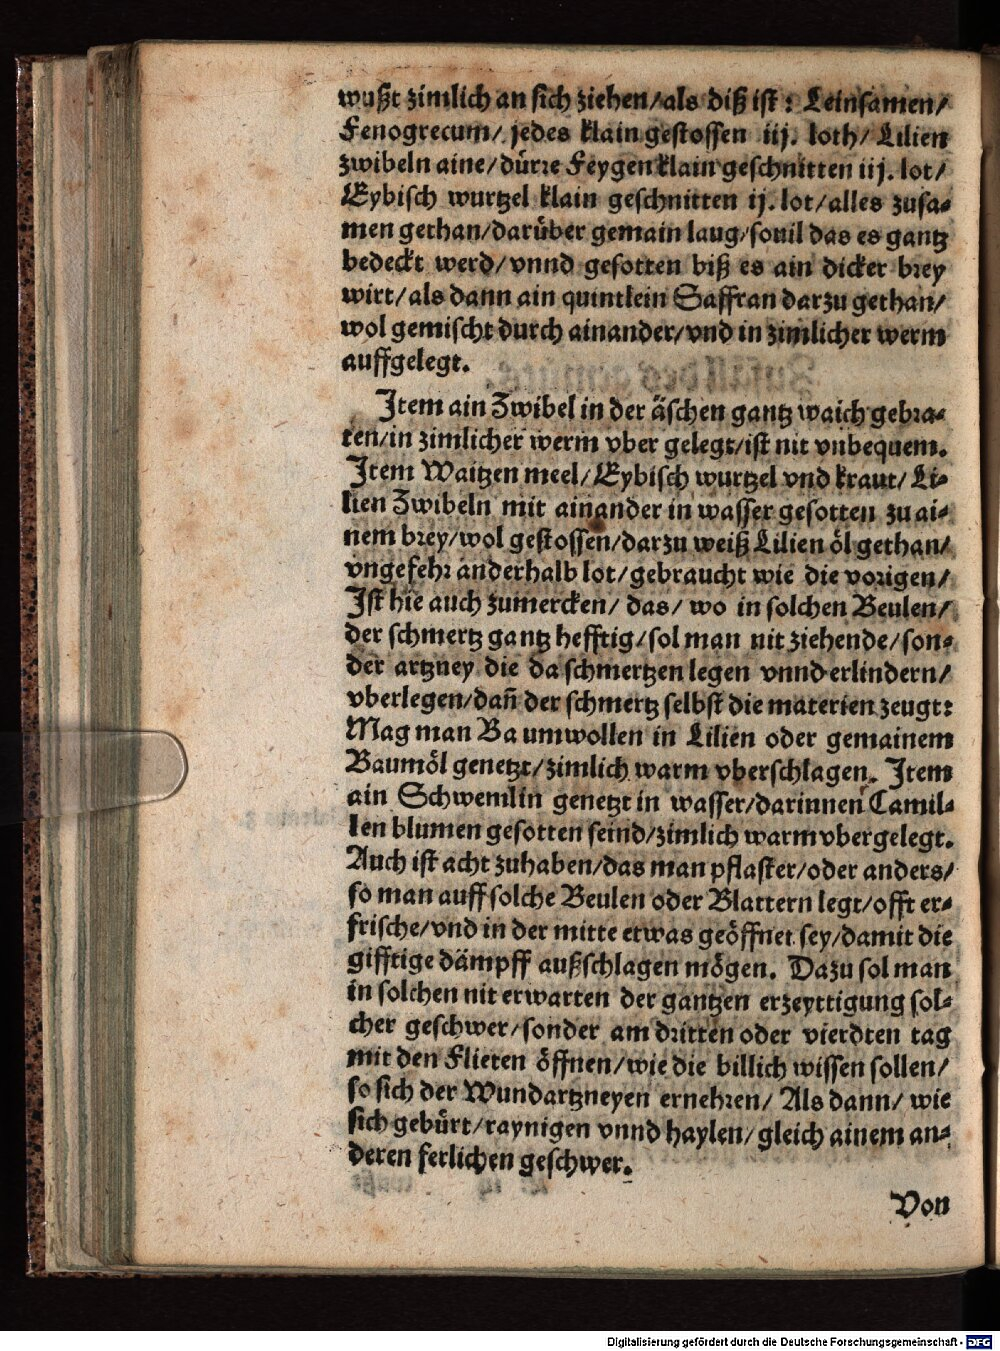 wußt zimlich an sich ziehen/als diß ist: Leinsamen/
Fenogrecum/ jedes klain gestossen iij. loth/ Lilien
zwibeln aine/dürre Feygen klain geschnitten iij. lot/
Eybisch wurtzel klain geschnitten ij. lot/alles zusa-
men gethan/darüber gemain laug/souil das es gantz
bedeckt werd/vnnd gesotten biß es ain dicker brey
wirt/als dann ain quintlein Saffran darzu gethan/
wol gemischt durch ainander/vnd in zimlicher werm
auffgelegt.
Item ain Zwibel in der äschen gantz waich gebra-
ten/in zimlicher werm vber gelegt/ist nit vnbequem.
Item Waitzen meel/Eybisch wurtzel vnd kraut/Li-
lien Zwibeln mit ainander in wasser gesotten zu ai-
nem brey/wol gestossen/darzu weiß Lilien öl gethan/
vngefehr anderhalb lot/gebraucht wie die vorigen/
Ist hie auch zumercken/ das/ wo in solchen Beulen/
der schmertz gantz hefftig/sol man nit ziehende/son-
der artzney die da schmertzen legen vnnd erlindern/
vberlegen/dañ der schmertz selbst die materien zeugt:
Mag man Baumwollen in Lilien oder gemainem
Baumöl genetzt/zimlich warm vberschlagen. Item
ain Schwemlin genetzt in wasser/darinnen Camil-
len blumen gesotten seind/zimlich warm vbergelegt.
Auch ist acht zuhaben/das man pflaster/oder anders/
so man auff solche Beulen oder Blattern legt/offt er-
frische/vnd in der mitte etwas geöffnet sey/damit die
gifftige dämpff außschlagen mögen. Dazu sol man
in solchen nit erwarten der gantzen erzeyttigung sol-
cher geschwer/sonder am dritten oder vierdten tag
mit den Flieten öffnen/wie die billich wissen sollen/
so sich der Wundartzneyen ernehren/ Als dann/ wie
sich gebürt/raynigen vnnd haylen/gleich ainem an-
deren ferlichen geschwer.
Von
Digitalisierung gefördert durch die Deutsche Forschungsgemeinschaft - DFG